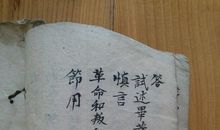 答
試述畢業
慎言
革命和叛
節用